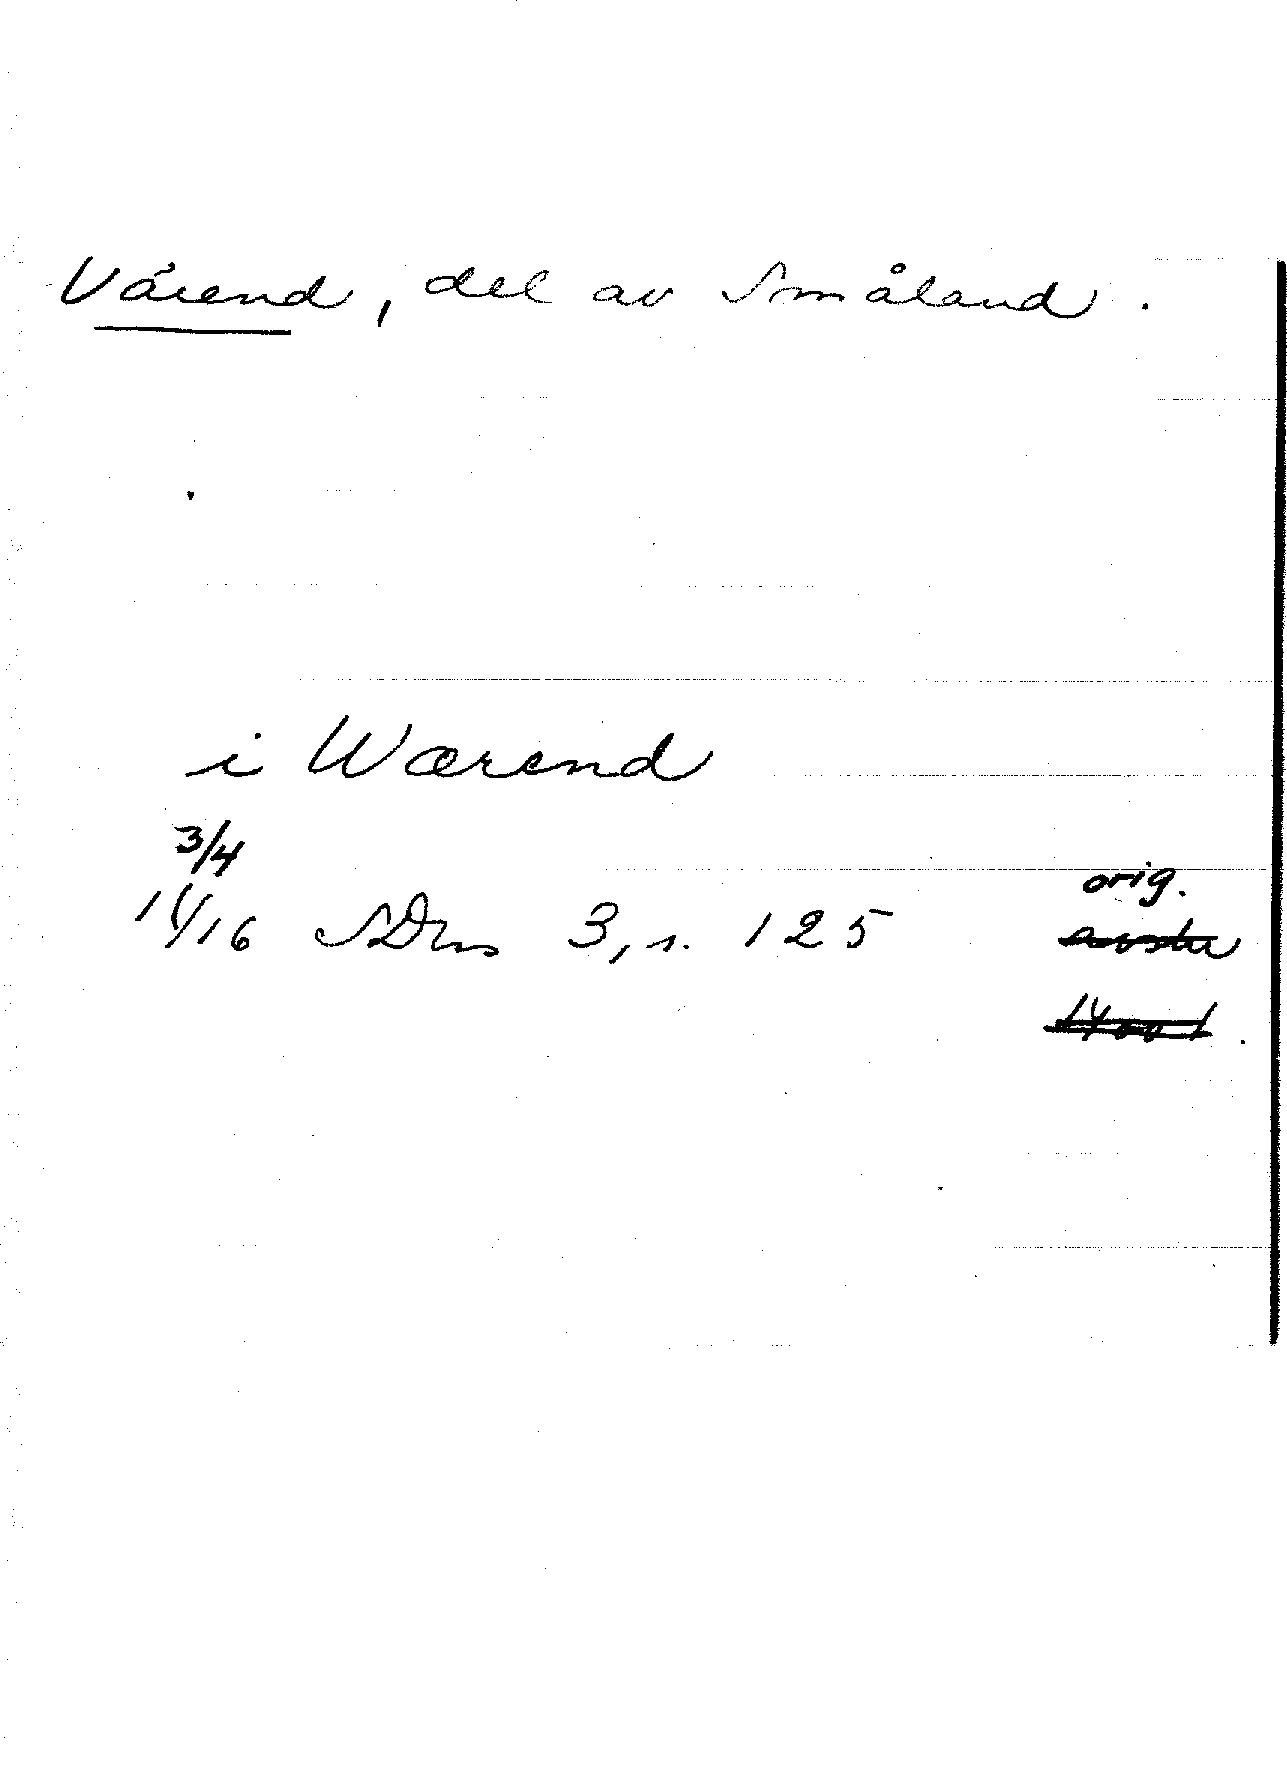 Värend, del av Småland.
i Wærend
3/4
1416 SDns 3, s. 125 orig.
avskr
1400 t.